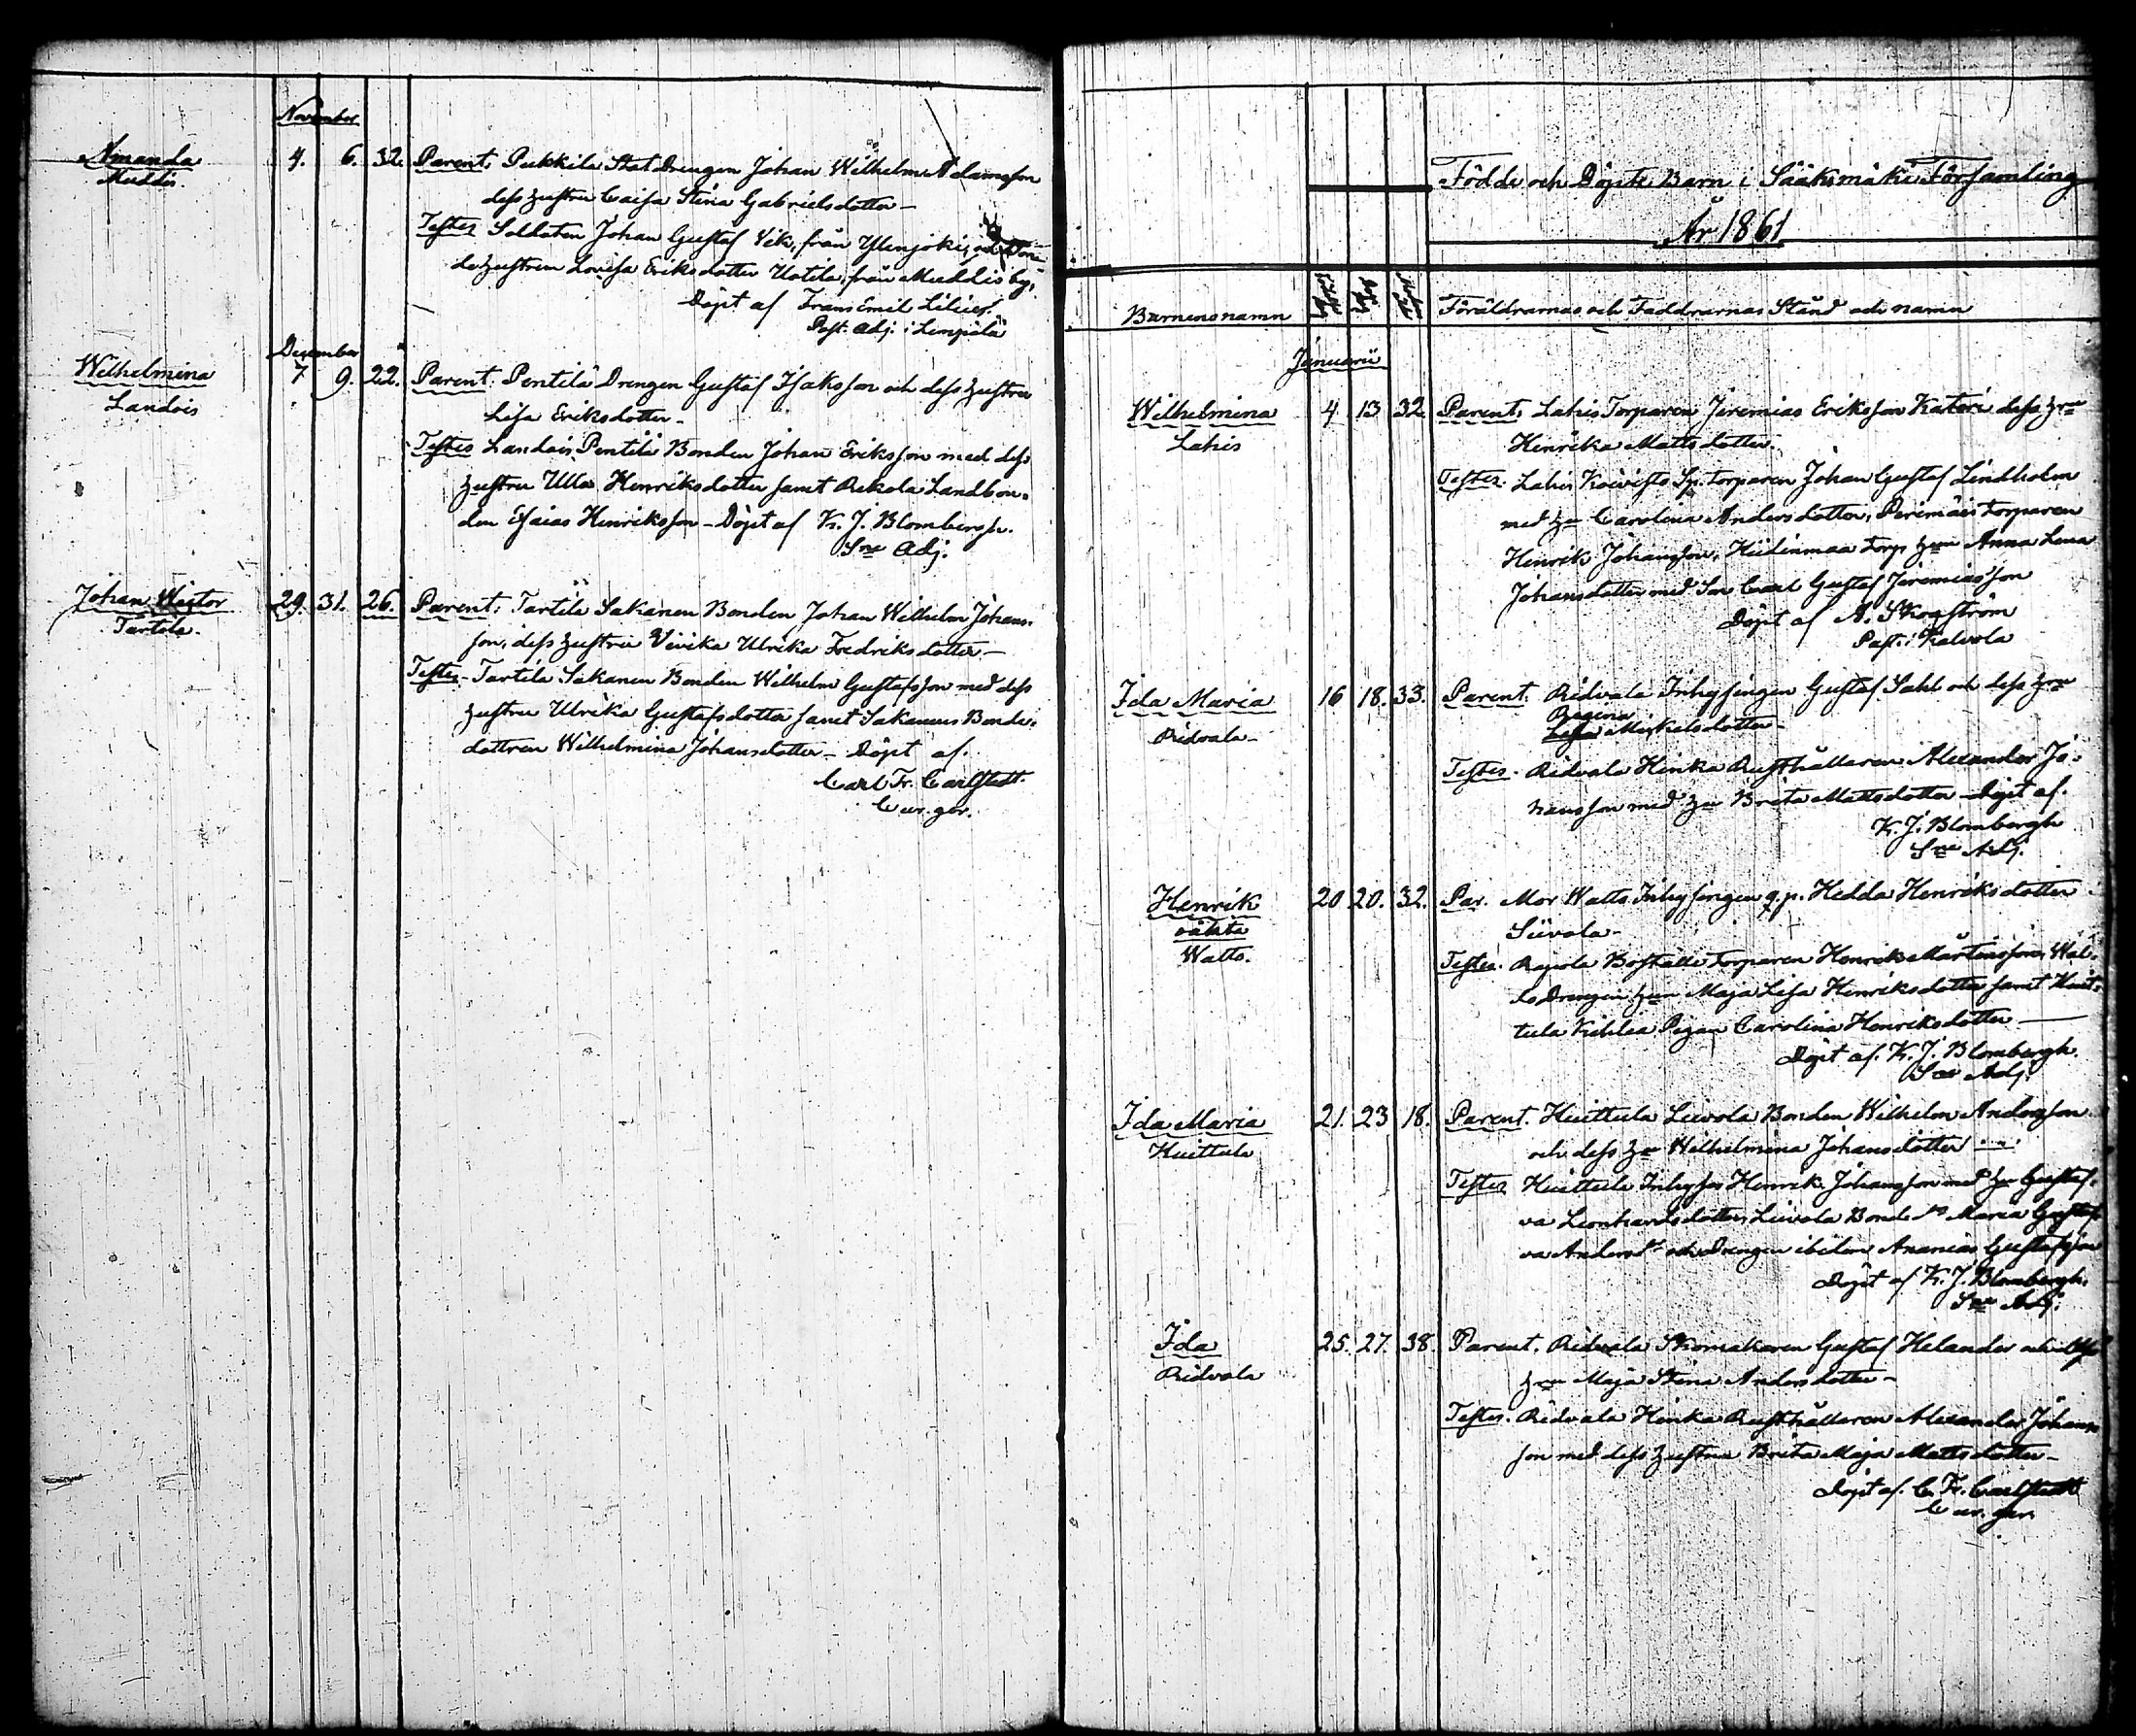 November
Amanda 4. 6. 32. Parent: Pukkila Statdrengen Johan Wilhelm Adamsson
Muddis. dess hustru Caisa Stina Gabrielsdotter –
Testes Soldaten Johan Gustaf Vik, från Ylenjoki, och Bon-
dehustrun Lovisa Eriksdotter Uotila, från Muddis by,
Döpt af Frans Emil Lilius.
Past. Adj. i Lempälä
December
Wilhelmina 7 9. 22. Parent: Pentilä Drengen Gustaf Isaksson och dess hustru
Landois Lisa Eriksdotter –
Testes Landois Pentilä Bonden Johan Eriksson med dess
hustru Ulla Henriksdotter samt Rekola Landbon-
den Esaias Henriksson – Döpt af K. J. Blombergh.
Sne Adj.
Johan Wictor 29. 31. 26. Parent: Tartila Sakanen Bonden Johan Wilhelm Johans-
Tartila. son, dess hustru Vivika Ulrika Fredriksdotter –
Testes – Tartila Sakanen Bonden Wilhelm Gustafsson med dess
hustru Ulrika Gustafsdotter samt Sakanens Bonde-
dottren Wilhelmina Johansdotter – Döpt af.
Carl Fr. Carlstedt.
Cur. gör.
Födde och Döpte Barn i Sääksmäki Församling
År 1861
Barnens namn Föräldrarnas och Faddrarnas Stånd och namn
Januarii
Wilhelmina 4 13 32. Parent: Lahis Torparen Jeremias Eriksson Kateri dess hru
Lahis Henrika Mattsdotter.
Testes. Lahis Koivisto Sp. torparen Johan Gustaf Lindholm
med hu Carolina Andersdotter, Perimäis torparen
Henrik Johansson, Hiidenmaa torp. hun Anna Lena
Johansdotter med Son Carl Gustaf Jeremiasson
Döpt af A. Skogström
Past. i Kalvola
Ida Maria 16 18. 33. Parent. Ridvala Inhysingen Gustaf Sahl och dess hru
Regina
Ridvala – Lisa Mickelsdotter –
Testes. Ridvala Hinka Rusthållaren Alexander Jo-
hansson med hu Brita Mattsdotter – Döpt af.
K. J. Blombergh
Sne Adj.
Henrik 20 20. 32. Par. Mor Watts Inhysingen q.p. Hedda Henriksdotter
oäkta Siivola –
Watts. Testes. Rapola Boställe torparen Henrik Mårtensson, Wal-
lo Drengen hun Maja Lisa Henriksdotter samt Huit-
tula Kihlia Pigan Carolina Henriksdotter —
Döpt af. K. J. Blombergh.
Sne Adj.
Ida Maria 21. 23 18. Parent. Huittula Liuvola Bonden Wilhelm Andersson
Huittula och dess hu Wilhelmina Johansdotter
Testes Huittula Inhyses Henrik Johansson med hu Gustaf-
va Leonhardsdotter, Liuvola Bonde Maria Gustaf-
va Andersdr och Drengen ibidem Ananias Gustafsson
Döpt af K. J. Blombergh.
Sne Adj.
Ida 25. 27. 38 Parent. Ridvala Skomakaren Gustaf Helander och dess
Ridvala hru Maja Stina Andersdotter –
Testes. Ridvala Hinka Rusthållaren Alexander Johans-
son med dess hustru Brita Maja Mattsdotter –
Döpt af. C. Fr. Carlstedt
Cur. gör.